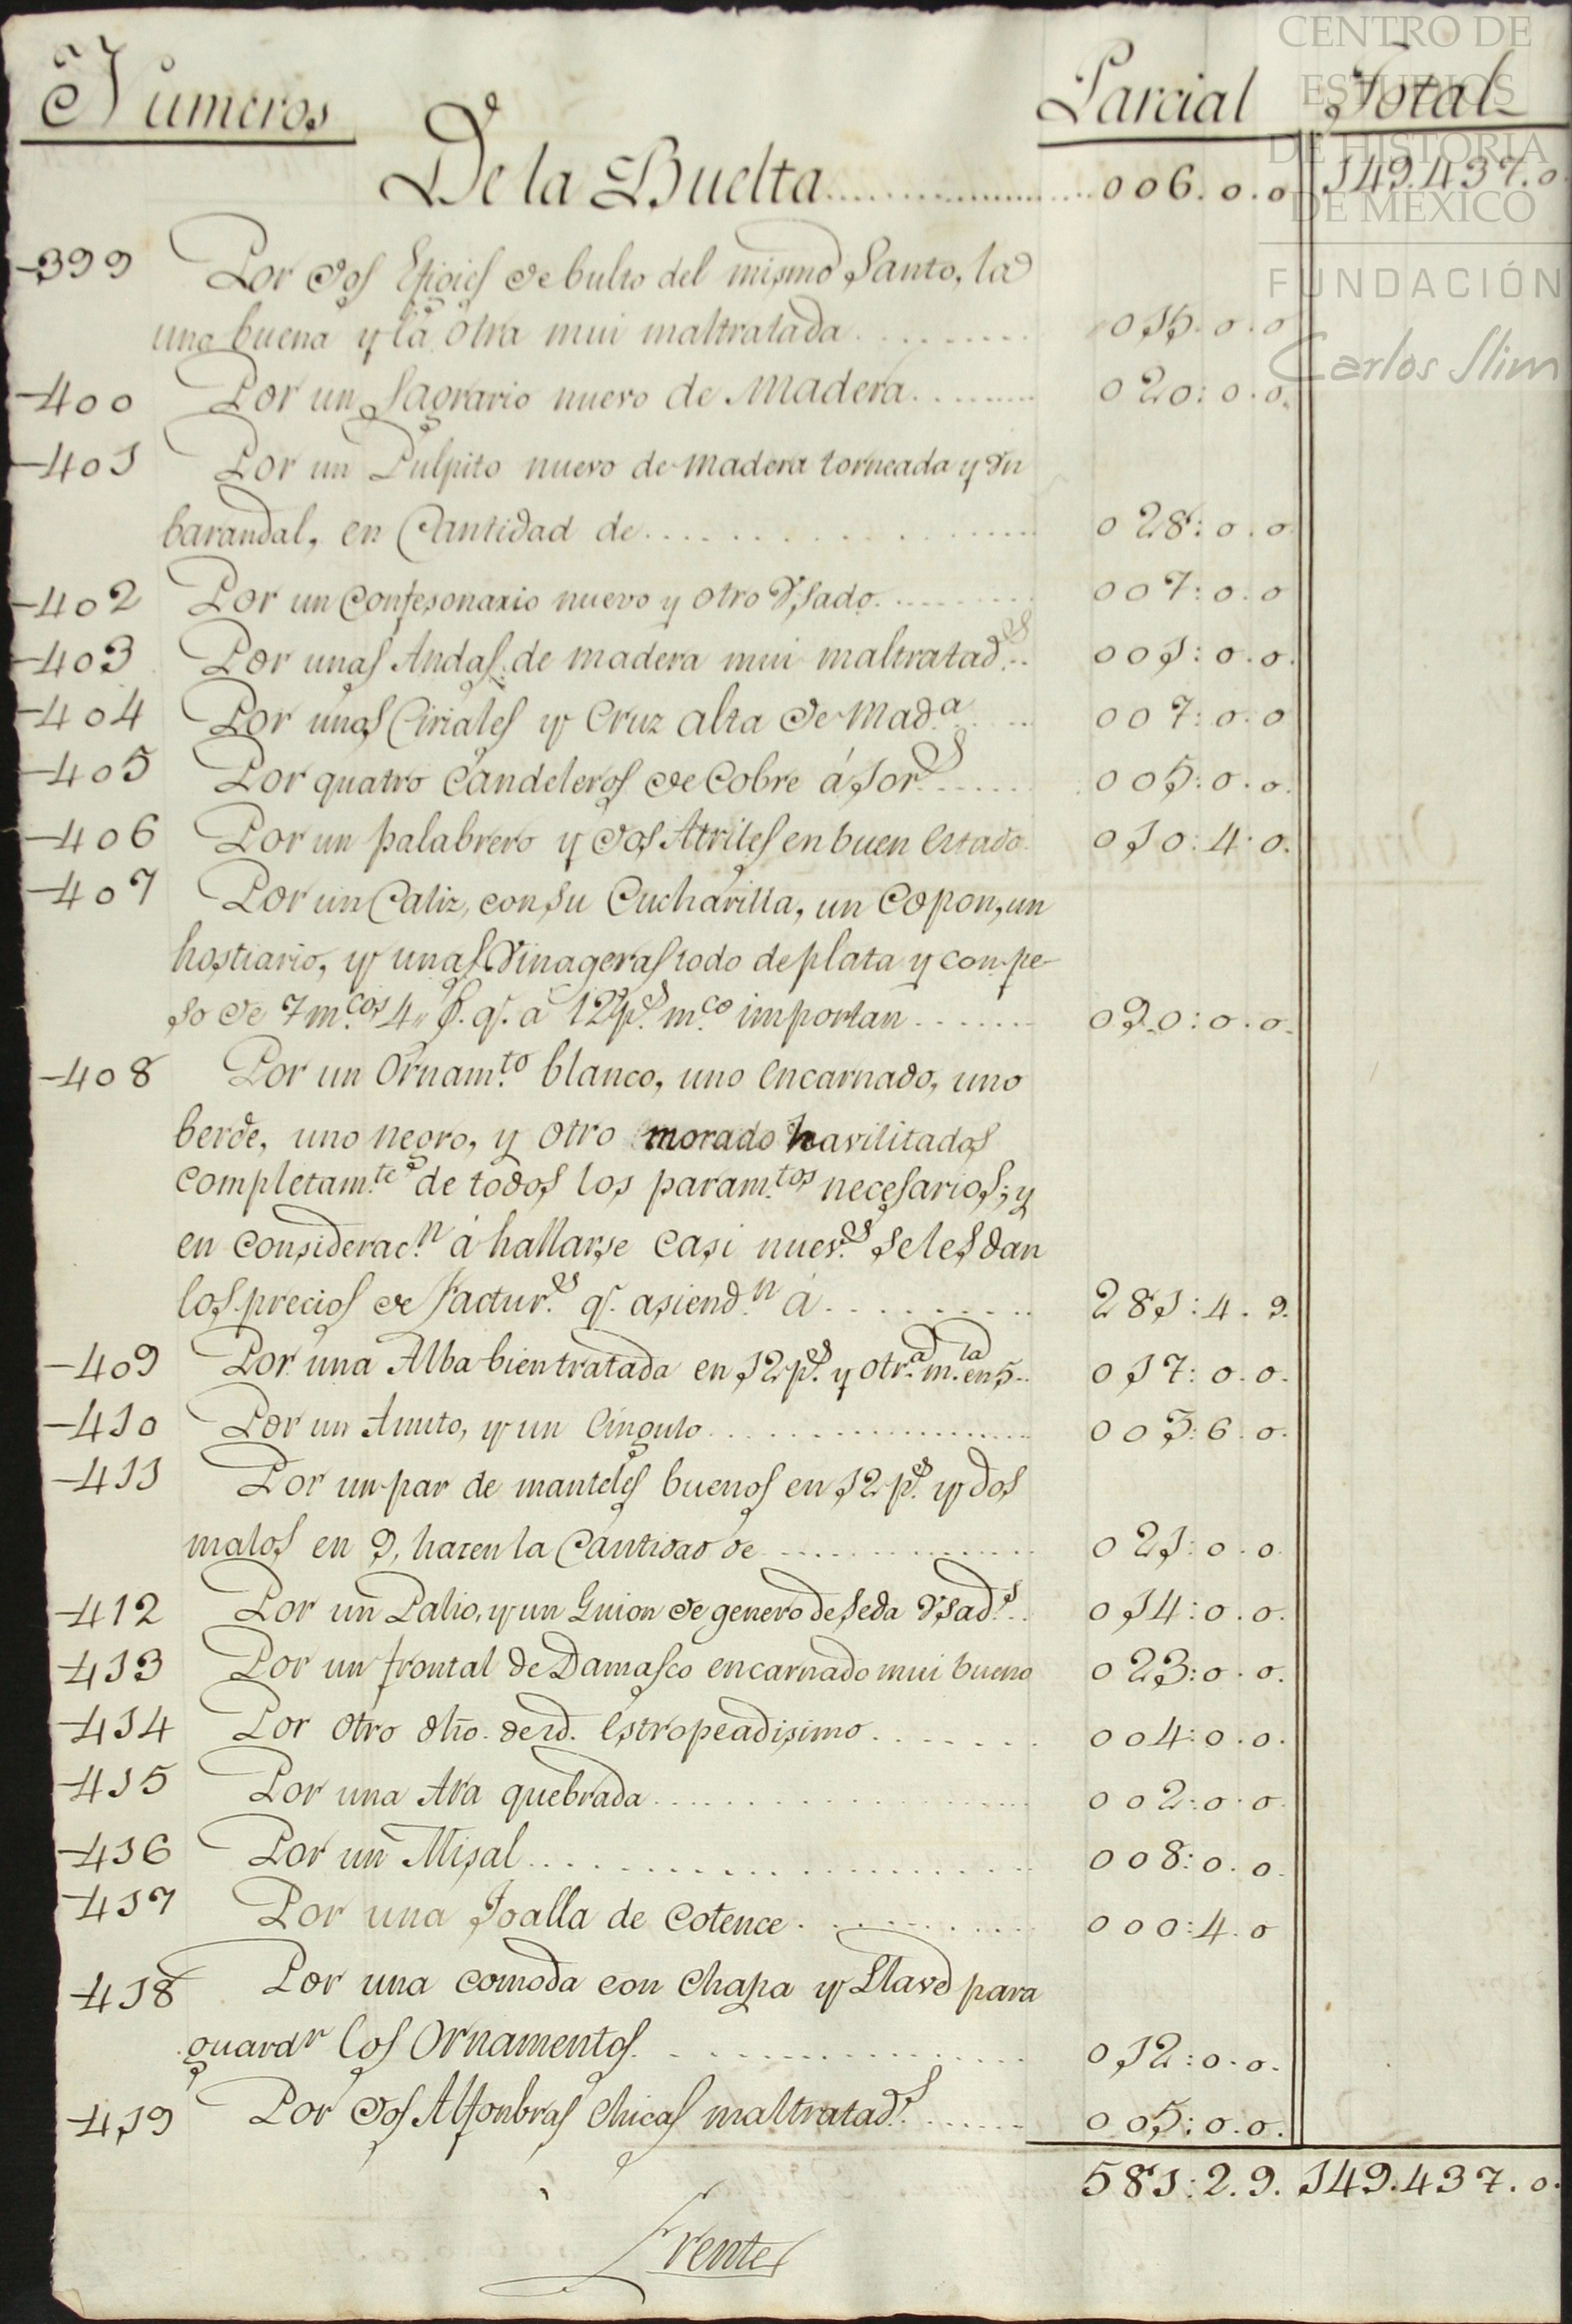 Números Parcial Total
De la Buelta 006.0.0 149.437.0
399 Por dos Efigies de bulto del mismo Santo, la
una buena y la otra mui maltratada 015.0.0
400 Por un Sagrario nuevo de Madera 020:0.0.
401 Por un Pulpito nuevo de madera torneada y Su
barandal, en Cantidad de 028:0.0
402 Por un Confesonario nuevo y otro Vsado. 007:0.0
403 Por unas Andas de madera mui maltratad.s 001:0.0.
404 Por unos Ciriales y Cruz alta de Mad.a 007:0.0
405 Por quatro Candeleros de Cobre á 10 r.s 005:0.0.
406 Por un palabrero y dos Atriles en buen estado 010:4.0.
407 Por un Caliz, con su Cucharilla, un Copon, un
hostiario, y unas Vinageras todo de plata y con pe-
so de 7 m.cos 4,, q.e á 12 p.s m.co importan 090:0.0.
408 Por un Ornam.to blanco, uno encarnado, uno
berde, uno negro, y otro morado havilitados
completam.te de todos los param.tos necesarios; y
en considerac.n á hallarse casi nuev.s se les dan
los precios de Factur.s q.e asiend.n á 281:4.9.
409 Por una Alba bien tratada en 12 p.s y otr.a m.la en 5 017:0.0.
410 Por un Amito, y un Cíngulo 003:6.0.
411 Por un par de manteles buenos en 12 p.s y dos
malos en 9, hacen la Cantidad de 021:0.0
412 Por un Palio, y un Guion de genero de Seda Vsad.s 014:0.0.
413 Por un frontal de Damasco encarnado mui bueno 023:0.0.
414 Por otro dho. de id. estropeadisimo 004:0.0.
415 Por una Ara quebrada 002:0.0.
416 Por un Misal 008:0.0.
417 Por una Toalla de Cotence 000:4.0
418 Por una comoda con Chapa y Llave para
guardr los Ornamentos. 012:0.0.
419 Por dos Alfonbras Chicas maltratad.s 005:0.0.
581:2.9. 149.437.0.
Frente
CENTRO DE
ESTUDIOS
DE HISTORIA
DE MÉXICO
FUNDACIÓN
Carlos Slim